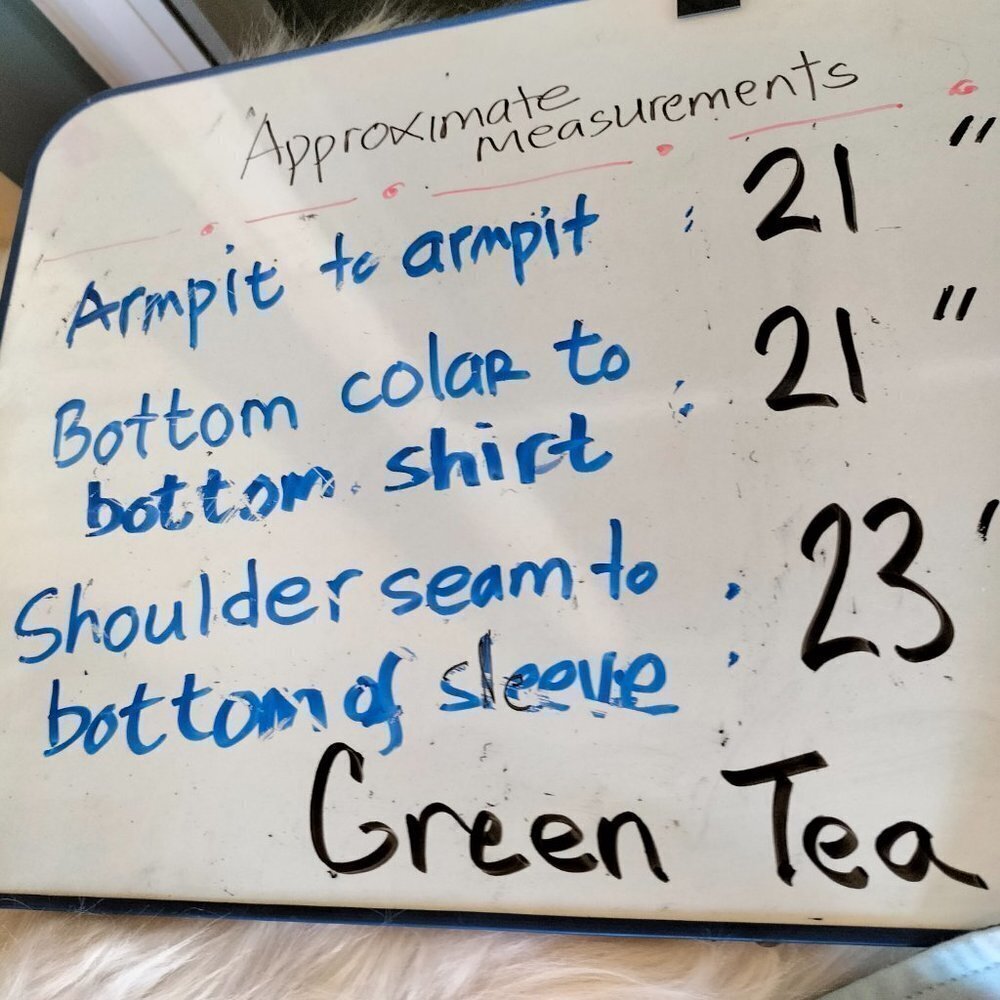 Approximate
measurements
Armpit to armpit : 21 "
Bottom colar to : 21 "
bottom shirt
Shoulder seam to : 23 '
bottom of sleeve
Green Tea